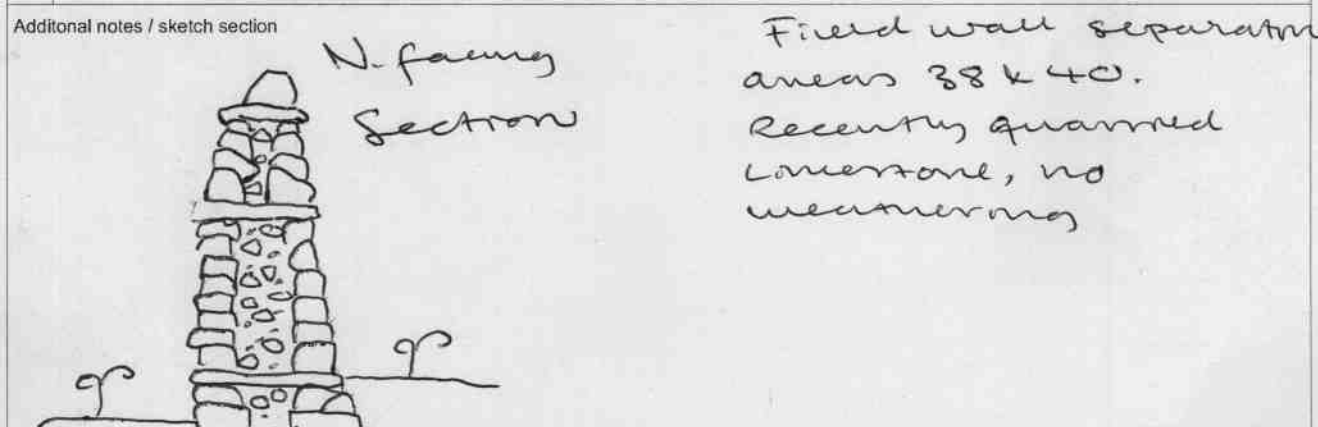 Additonal notes / sketch section
N. facing
Section
Field wall separating
areas 38 & 40.
Recently quarried
Limestone, no
weathering